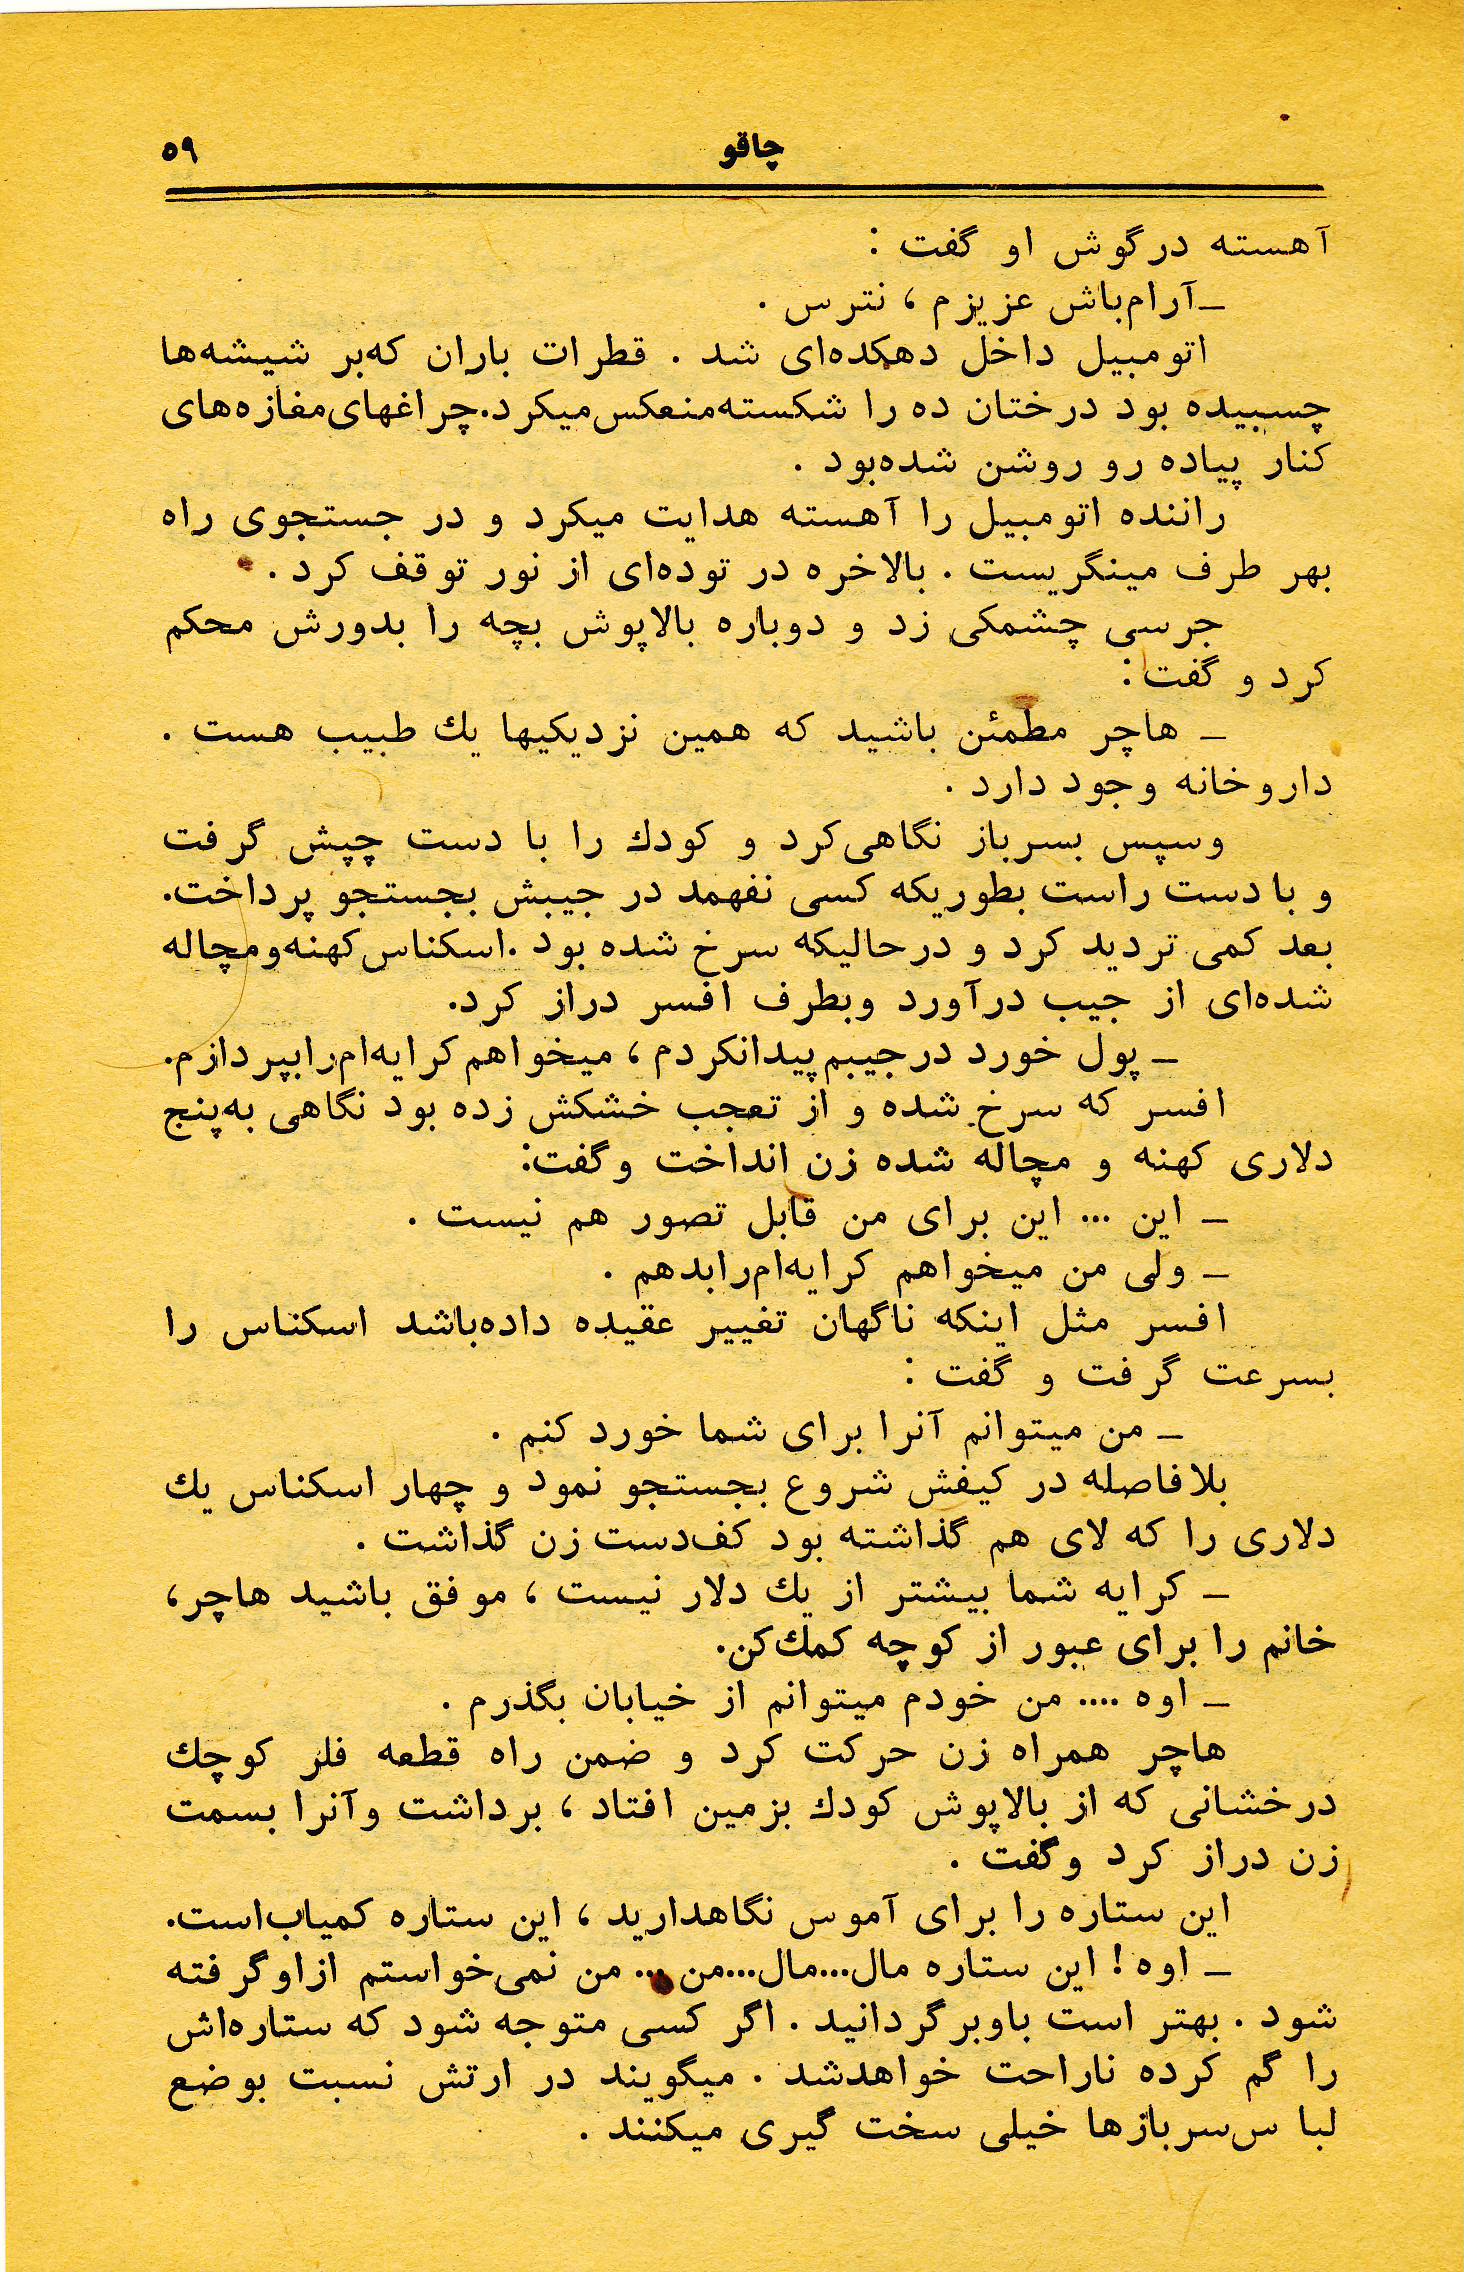 چاقو ۵۹
آهسته درگوش او گفت :
ـآرام‌باش عزیزم ، نترس .
اتومبیل داخل دهکده‌ای شد . قطرات باران که‌بر شیشه‌ها
چسبیده بود درختان ده را شکسته‌منعکس‌میکرد.چراغهای‌مغازه‌های
کنار پیاده رو روشن شده‌بود .
راننده اتومبیل را آهسته هدایت میکرد و در جستجوی راه
بهر طرف مینگریست . بالاخره در توده‌ای از نور توقف کرد .
جرسی چشمکی زد و دوباره بالاپوش بچه را بدورش محکم
کرد و گفت :
ـ هاچر مطمئن باشید که همین نزدیکیها یك طبیب هست .
داروخانه وجود دارد .
وسپس بسرباز نگاهی‌کرد و کودك را با دست چپش گرفت
و با دست راست بطوریکه کسی نفهمد در جیبش بجستجو پرداخت.
بعد کمی تردید کرد و درحالیکه سرخ شده بود .اسکناس‌کهنه‌ومچاله
شده‌ای از جیب درآورد وبطرف افسر دراز کرد.
ـ پول خورد درجیبم‌پیدانکردم ، میخواهم‌کرایه‌ام‌رابپردازم.
افسر که سرخ شده و از تعجب خشکش زده بود نگاهی به‌پنج
دلاری کهنه و مچاله شده زن انداخت وگفت:
ـ این ... این برای من قابل تصور هم نیست .
ـ ولی من میخواهم کرایه‌ام‌رابدهم .
افسر مثل اینکه ناگهان تغییر عقیده داده‌باشد اسکناس را
بسرعت گرفت و گفت :
ـ من میتوانم آنرا برای شما خورد کنم .
بلافاصله در کیفش شروع بجستجو نمود و چهار اسکناس یك
دلاری را که لای هم گذاشته بود کف‌دست زن گذاشت .
ـ کرایه شما بیشتر از یك دلار نیست ، موفق باشید هاچر،
خانم را برای عبور از کوچه کمك‌کن.
ـ اوه .... من خودم میتوانم از خیابان بگذرم .
هاچر همراه زن حرکت کرد و ضمن راه قطعه فلر کوچك
درخشانی که از بالاپوش کودك بزمین افتاد ، برداشت وآنرا بسمت
زن دراز کرد وگفت .
این ستاره را برای آموس نگاهدارید ، این ستاره کمیاب‌است.
ـ اوه ! این ستاره مال...مال...من ... من نمی‌خواستم ازاوگرفته
شود . بهتر است باوبرگردانید . اگر کسی متوجه شود که ستاره‌اش
را گم کرده ناراحت خواهدشد . میگویند در ارتش نسبت بوضع
لبا س‌سربازها خیلی سخت گیری میکنند .